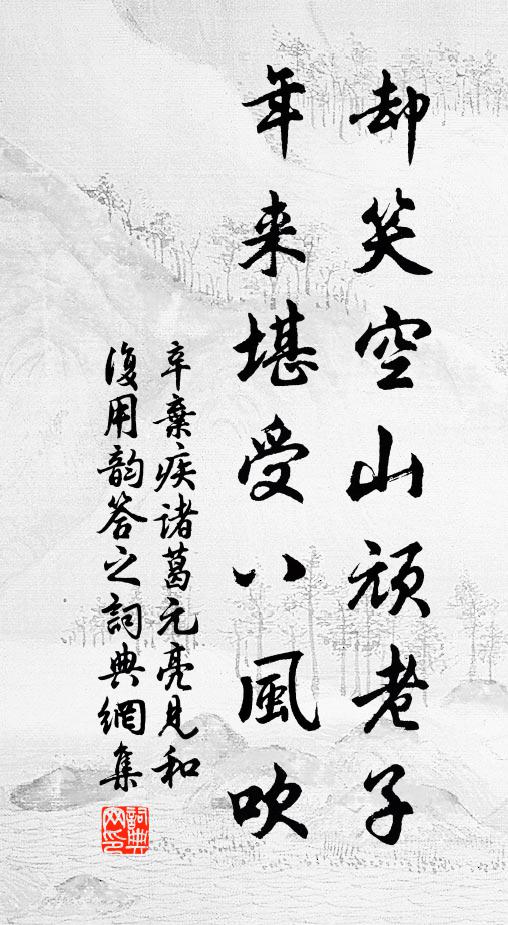 却笑空山顽老子
年来堪受八風吹
辛棄疾諸葛元亮見和
復用韵答之詞典網集
詞典网印